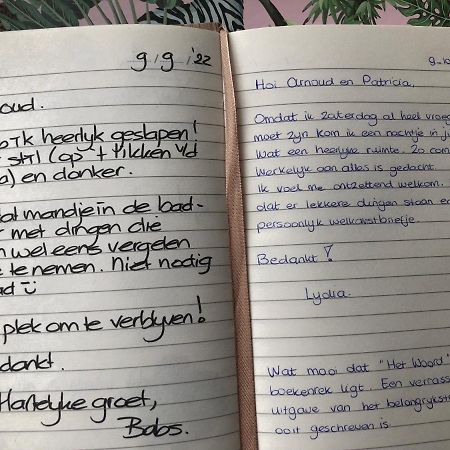 9/9/'22
oud.
Ik heerlyk geslapen!
stil (op 't tikken v/d
a) en donker.
mandje in de bad-
met dingen die
wel eens vergelen
te nemen. Niet nodig
ad
plek om te verblyven!
dankt.
Hartelyke groet,
Babs.
9-10
Hoi Arnoud en Patricia,
Omdat ik zaterdag al heel vroeg
moet zyn kom ik een nachtje in ju
Wat een heerlyke ruimte. Zo com
Werkelyk aan alles is gedacht.
Ik voel me ontzettend welkom.
dat er lekkere dingen staan e
persoonlyk welkomstbriefje.
Bedankt!
Lydia.
Wat mooi dat "Het Woord"
boekenrek ligt. Een verrass
uitgave van het belangrykst
ooit geschreven is.